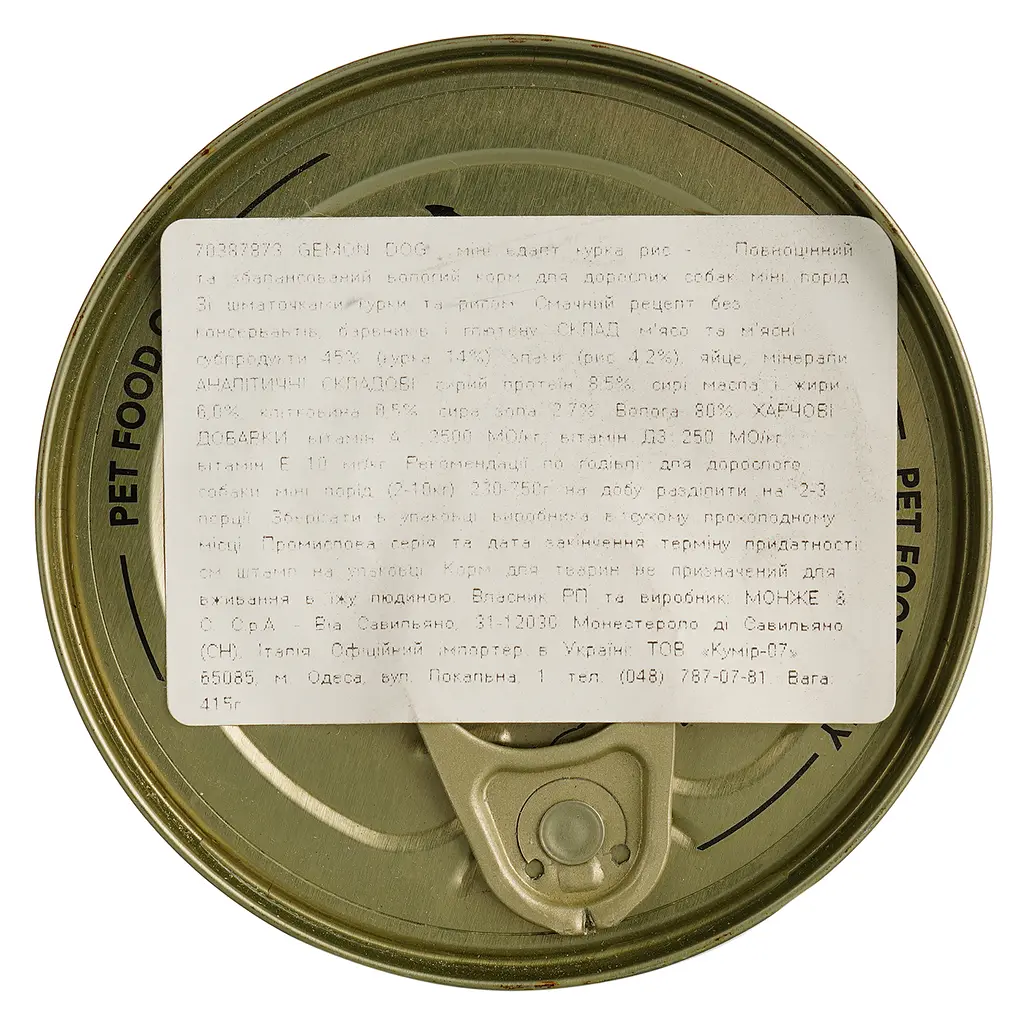 70387873 GEMON DOG міні едалт курка рис - Повноцінний
та збалансований вологий корм для дорослих собак міні порід
Зі шматочками курки та рисом. Смачний рецепт без
консервантів, барвників і глютену. СКЛАД: м'ясо та м'ясні
субпродукти 45% (курка 14%), злаки (рис 4.2%), яйце, мінерали
АНАЛІТИЧНІ СКЛАДОВІ: сирий протеїн 8,5%, сирі масла і жири
6,0%, клітковина 0,5%, сира зола 2,7%, Волога 80%. ХАРЧОВІ
ДОБАВКИ: вітамін А 3500 МО/кг, вітамін Д3 250 МО/кг,
вітамін Е 10 мг/кг. Рекомендації по годівлі: для дорослого
собаки міні порід (2-10кг) 230-750г на добу разділити на 2-3
порції. Зберігати в упаковці виробника в сухому прохолодному
місці. Промислова серія та дата закінчення терміну придатності:
см. штамп на упаковці. Корм для тварин не призначений для
вживання в їжу людиною. Власник РП та виробник: МОНЖЕ &
С. С.р.А. - Віа Савильяно, 31-12030 Монастероло ді Савильяно
(CH), Італія. Офіційний імпортер в Україні: ТОВ «Кумір-07»
65085, м. Одеса, вул. Локальна, 1 тел. (048) 787-07-81. Вага:
415г
PET FOOD
PET FOO
Y